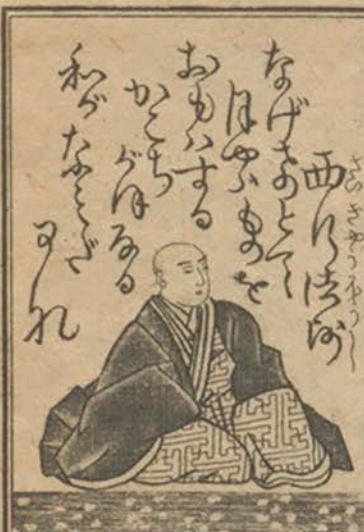 西行法師
さいぎやうほうし
なげけとて
月やハものを
おもハする
かこち
がほなる
和がなみだ
かな